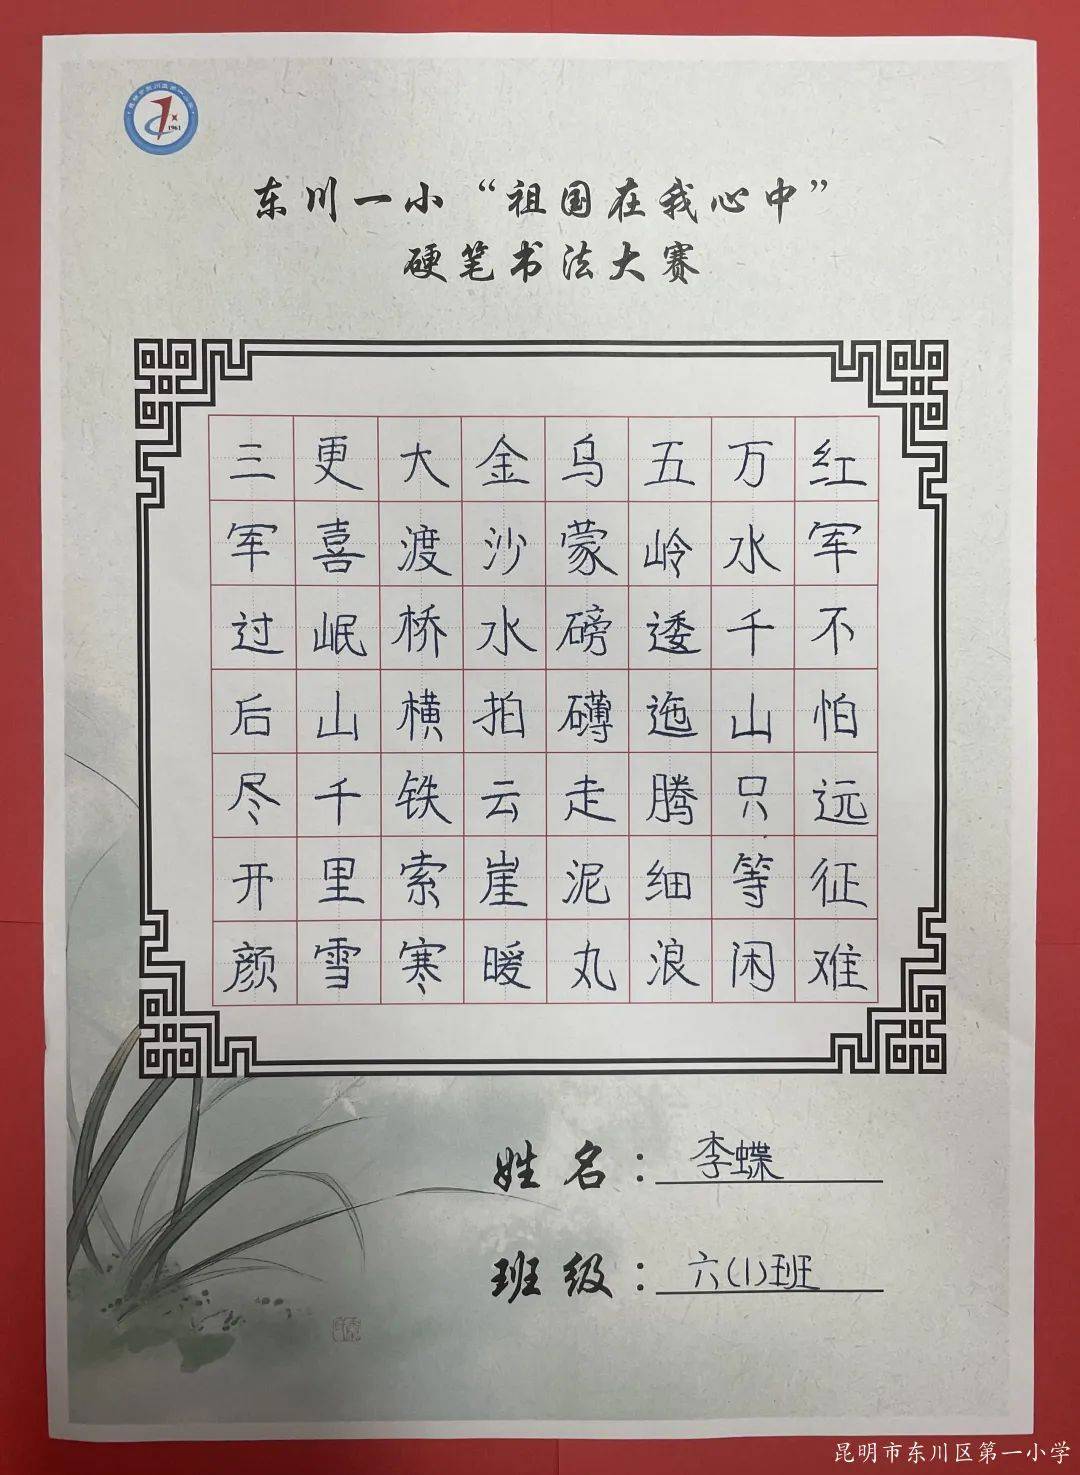 1961
东川一小“祖国在我心中”
硬笔书法大赛
红军不怕远征难
万水千山只等闲
五岭逶迤腾细浪
乌蒙磅礴走泥丸
金沙水拍云崖暖
大渡桥横铁索寒
更喜岷山千里雪
三军过后尽开颜
姓名：李蝶
班级：六(1)班
昆明市东川区第一小学